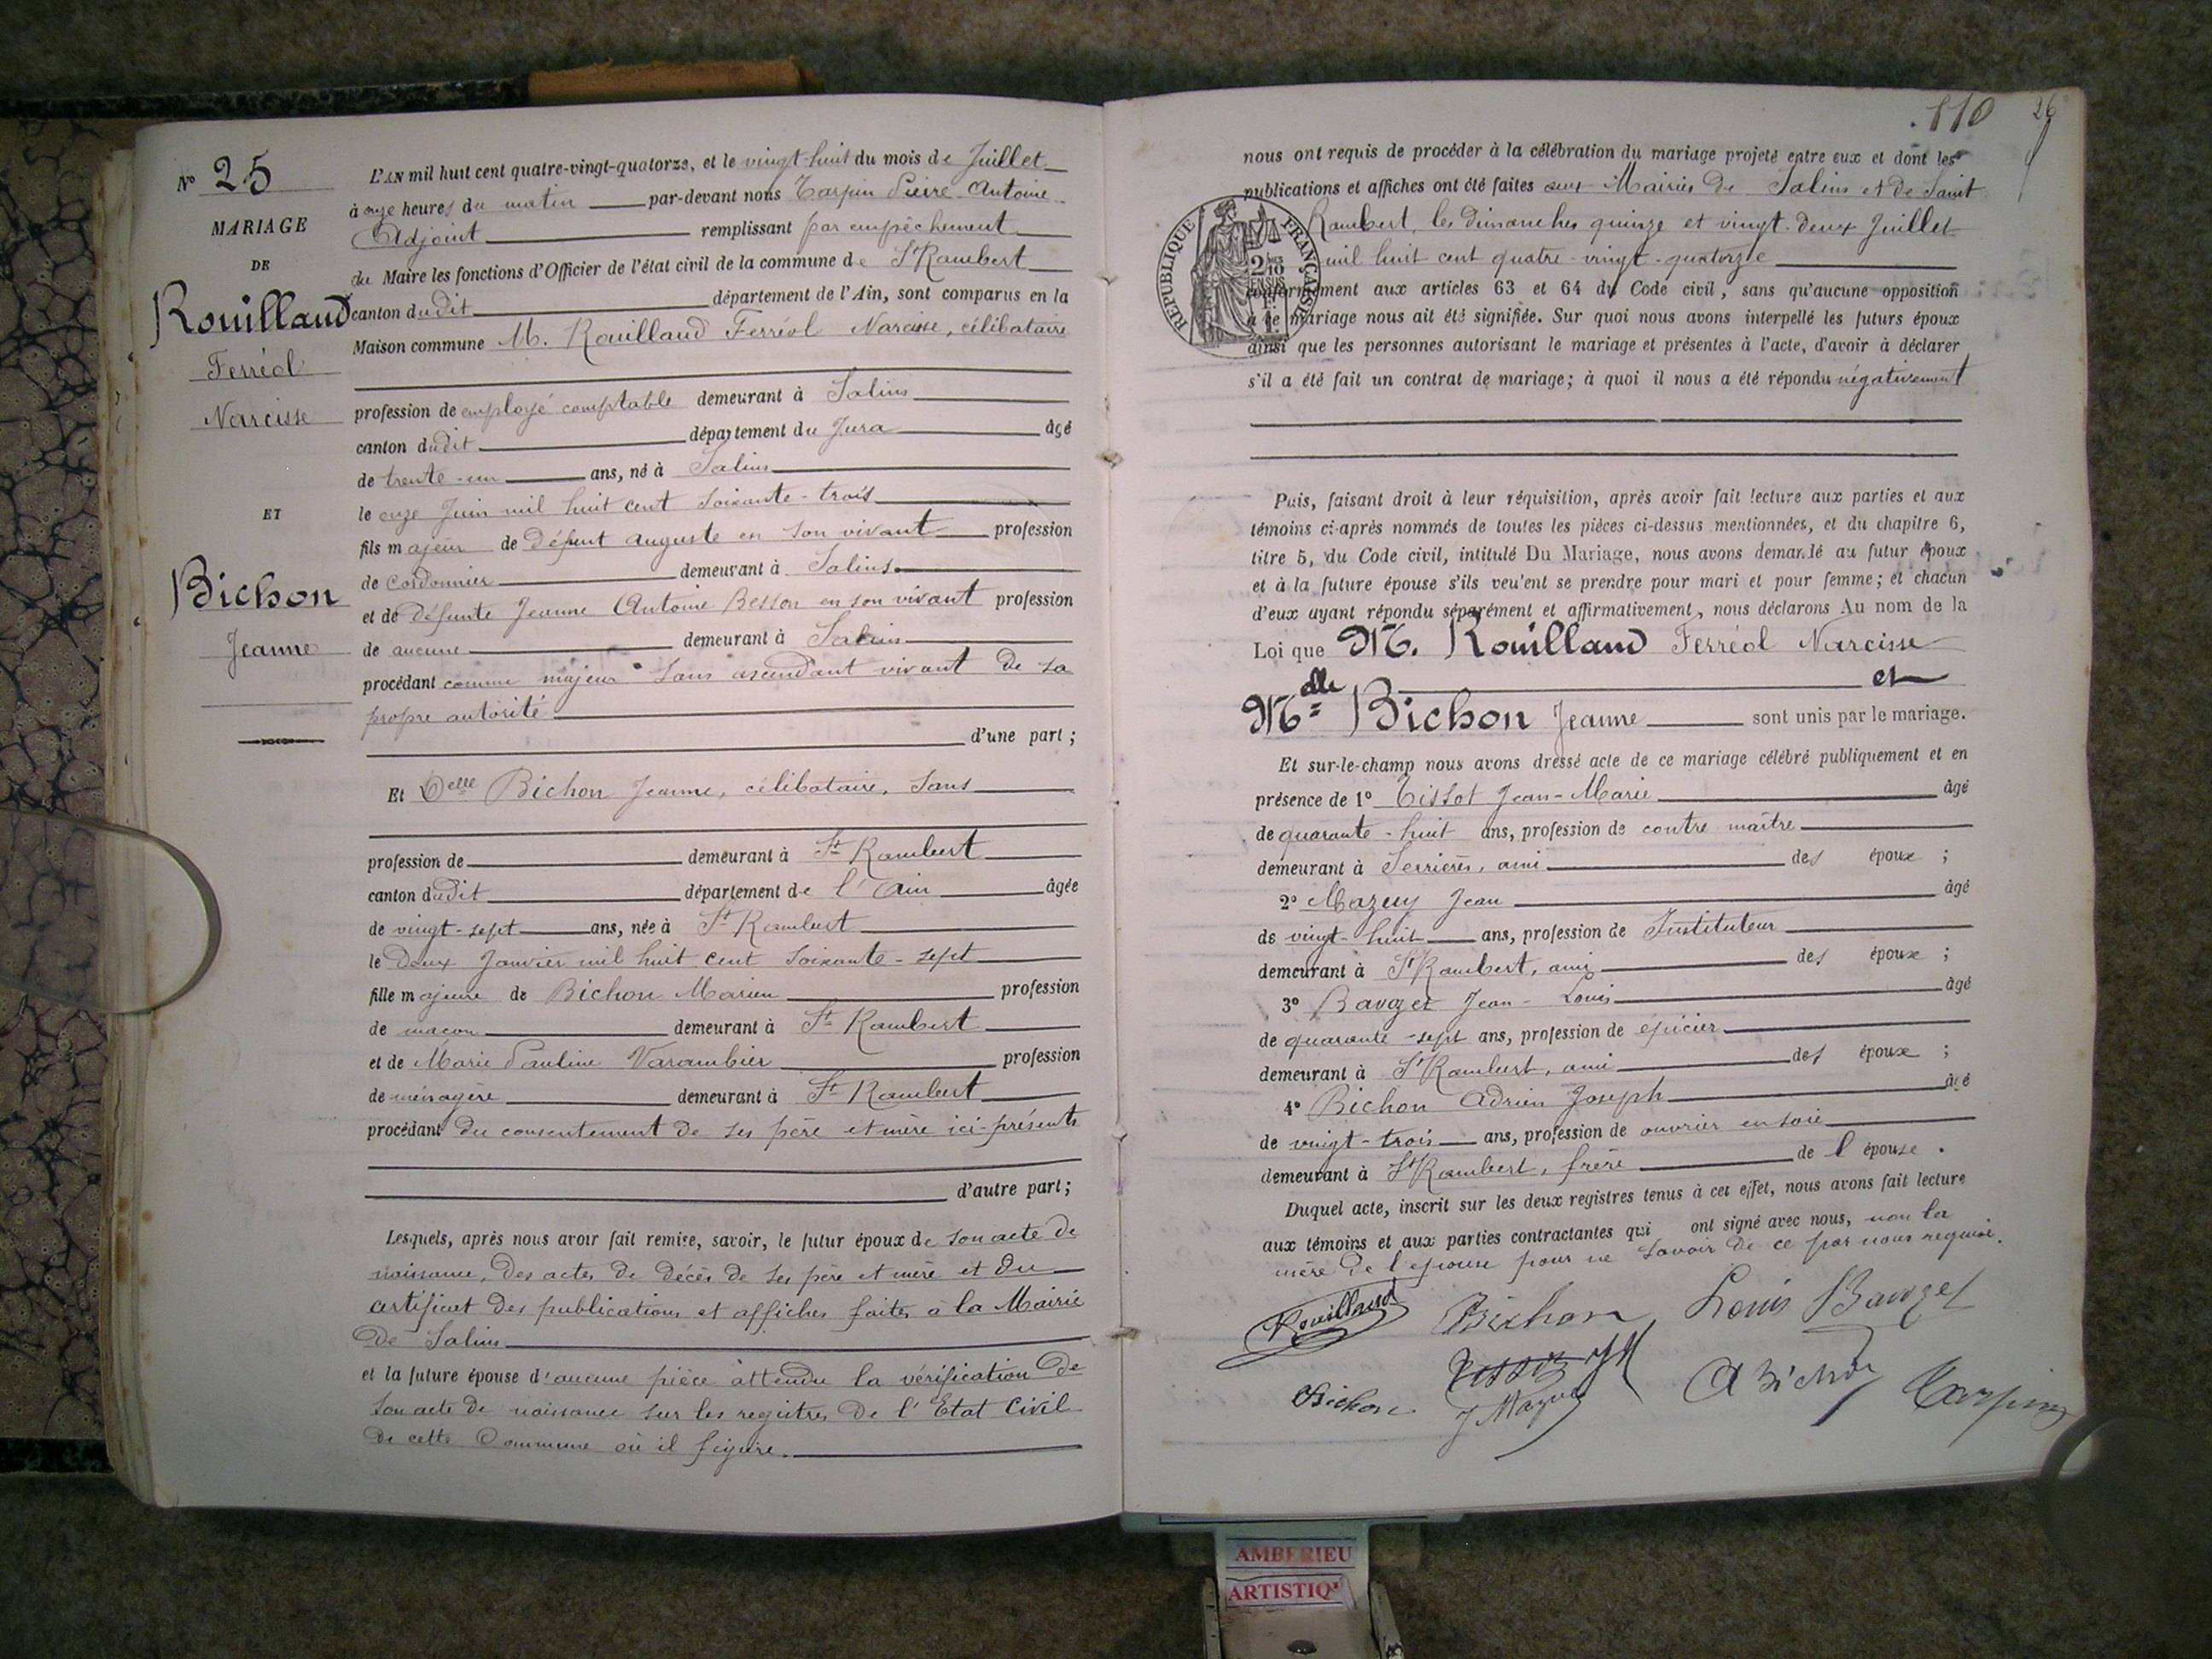 N° 25
MARIAGE
DE
Rouilland
Ferréol
Narcisse
ET
Bichon
Jeanne
L'AN mil huit cent quatre-vingt-quatorze, et le vingt-huit du mois de Juillet
à onze heures du matin par-devant nous Tarpin Pierre Antoine
Adjoint remplissant par empêchement
du Maire les fonctions d'Officier de l'état civil de la commune de St Rambert
canton dudit département de l'Ain, sont comparus en la
Maison commune M. Rouilland Ferréol Narcisse, célibataire
profession de employé comptable demeurant à Salins
canton dudit département du Jura âgé
de trente-un ans, né à Salins
le onze Juin mil huit cent soixante-trois
fils majeur de Défunt Auguste en son vivant profession
de Cordonnier demeurant à Salins
et de Défunte Jeanne Antoine Besson en son vivant profession
de aucune demeurant à Salins
procédant comme majeur sans ascendant vivant de sa
propre autorité
d'une part ;
Et Delle Bichon Jeanne, célibataire, sans
profession de demeurant à St Rambert
canton dudit département de l'Ain âgée
de vingt-sept ans, née à St Rambert
le Deux Janvier mil huit cent soixante-sept
fille majeure de Bichon Marien profession
de maçon demeurant à St Rambert
et de Marie Pauline Varambier profession
de ménagère demeurant à St Rambert
procédant du consentement de ses père et mère ici-présents
d'autre part ;
Lesquels, après nous avoir fait remise, savoir, le futur époux de son acte de
naissance, Des actes de décès de ses père et mère et du
certificat des publications et affiches faites à la Mairie
de Salins
et la future épouse d'aucune pièce attendu la vérification de
son acte de naissance sur les registres de l'Etat Civil
de cette Commune où il figure.
110 26
nous ont requis de procéder à la célébration du mariage projeté entre eux et dont les
publications et affiches ont été faites aux Mairies de Salins et de Saint
Rambert, les dimanches quinze et vingt-deux Juillet
mil huit cent quatre-vingt-quatorze
RÉPUBLIQUE FRANÇAISE
conformément aux articles 63 et 64 du Code civil, sans qu'aucune opposition
à ce mariage nous ait été signifiée. Sur quoi nous avons interpellé les futurs époux
ainsi que les personnes autorisant le mariage et présentes à l'acte, d'avoir à déclarer
s'il a été fait un contrat de mariage ; à quoi il nous a été répondu négativement
Puis, faisant droit à leur réquisition, après avoir fait lecture aux parties et aux
témoins ci-après nommés de toutes les pièces ci-dessus mentionnées, et du chapitre 6,
titre 5, du Code civil, intitulé Du Mariage, nous avons demandé au futur époux
et à la future épouse s'ils veulent se prendre pour mari et pour femme ; et chacun
d'eux ayant répondu séparément et affirmativement, nous déclarons Au nom de la
Loi que M. Rouilland Ferréol Narcisse
et
Melle Bichon Jeanne sont unis par le mariage.
Et sur-le-champ nous avons dressé acte de ce mariage célébré publiquement et en
présence de 1° Tissot Jean-Marie âgé
de quarante-huit ans, profession de contre maître
demeurant à Serrières, ami des époux ;
2° Mazuy Jean âgé
de vingt-huit ans, profession de Instituteur
demeurant à St Rambert, ami des époux ;
3° Bauzet Jean-Louis âgé
de quarante-sept ans, profession de épicier
demeurant à St Rambert, ami des époux ;
4° Bichon Adrien Joseph âgé
de vingt-trois ans, profession de ouvrier en soie
demeurant à St Rambert, frère de l'épouse.
Duquel acte, inscrit sur les deux registres tenus à cet effet, nous avons fait lecture
aux témoins et aux parties contractantes qui ont signé avec nous, non la
mère de l'épouse pour ne savoir de ce par nous requise.
Rouilland Bichon Louis Bauzet
Bichon Tissot JM A Bichon Tarpin
J Mazuy
AMBERIEU
ARTISTIQ